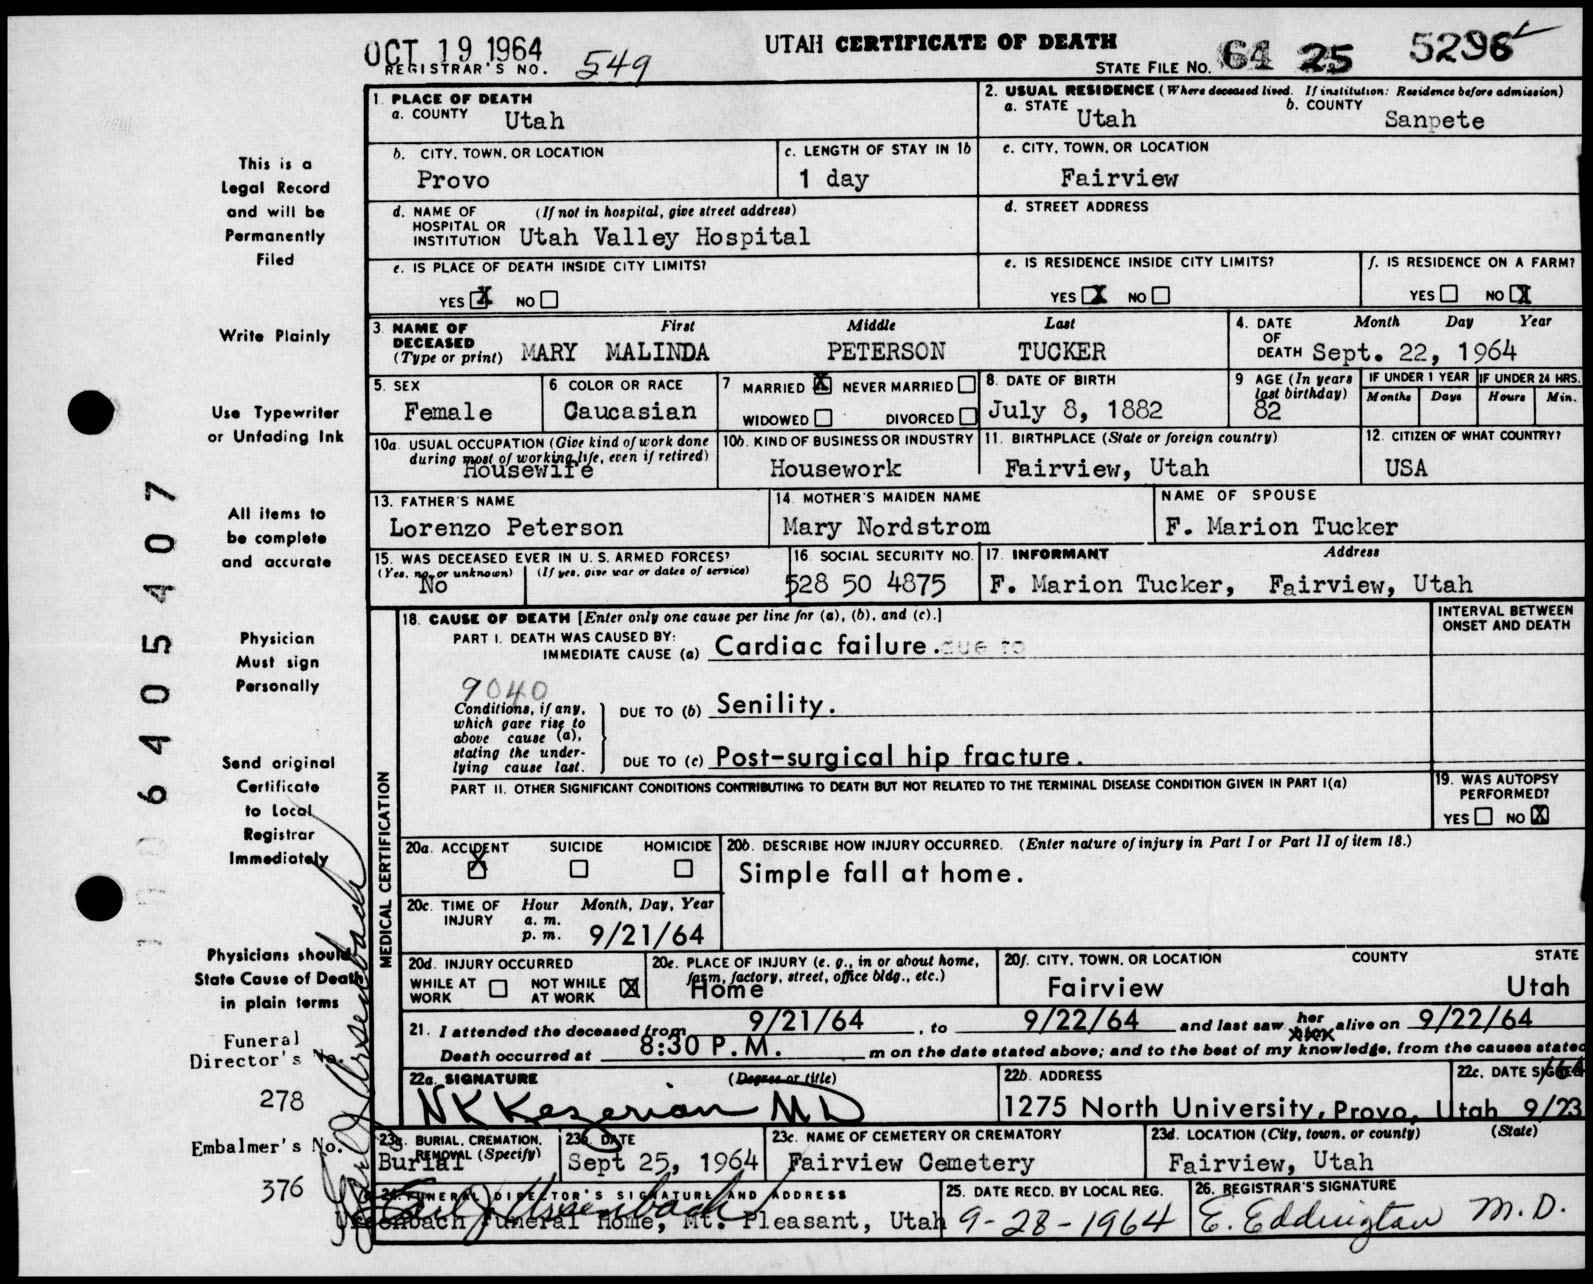 OCT 19 1964
UTAH CERTIFICATE OF DEATH
REGISTRAR'S NO. 549
STATE FILE NO. 64 25 5296
1. PLACE OF DEATH
a. COUNTY Utah
2. USUAL RESIDENCE (Where deceased lived. If institution: Residence before admission)
a. STATE Utah b. COUNTY Sanpete
b. CITY, TOWN, OR LOCATION Provo
c. LENGTH OF STAY IN 1b 1 day
c. CITY, TOWN, OR LOCATION Fairview
d. NAME OF HOSPITAL OR INSTITUTION (If not in hospital, give street address) Utah Valley Hospital
d. STREET ADDRESS
e. IS PLACE OF DEATH INSIDE CITY LIMITS?
YES X NO
e. IS RESIDENCE INSIDE CITY LIMITS?
YES X NO
f. IS RESIDENCE ON A FARM?
YES NO X
3. NAME OF DECEASED (Type or print)
First Middle Last
MARY MALINDA PETERSON TUCKER
4. DATE OF DEATH Month Day Year
Sept. 22, 1964
5. SEX Female
6 COLOR OR RACE Caucasian
7 MARRIED X NEVER MARRIED
WIDOWED DIVORCED
8. DATE OF BIRTH July 8, 1882
9 AGE (In years last birthday) 82
IF UNDER 1 YEAR Months Days
IF UNDER 24 HRS. Hours Min.
10a. USUAL OCCUPATION (Give kind of work done during most of working life, even if retired)
Housewife
10b. KIND OF BUSINESS OR INDUSTRY Housework
11. BIRTHPLACE (State or foreign country) Fairview, Utah
12. CITIZEN OF WHAT COUNTRY? USA
13. FATHER'S NAME Lorenzo Peterson
14. MOTHER'S MAIDEN NAME Mary Nordstrom
NAME OF SPOUSE F. Marion Tucker
15. WAS DECEASED EVER IN U. S. ARMED FORCES?
(Yes, no, or unknown) (If yes, give war or dates of service)
No
16. SOCIAL SECURITY NO. 528 50 4875
17. INFORMANT Address
F. Marion Tucker, Fairview, Utah
MEDICAL CERTIFICATION
18. CAUSE OF DEATH [Enter only one cause per line for (a), (b), and (c).]
INTERVAL BETWEEN ONSET AND DEATH
PART I. DEATH WAS CAUSED BY:
IMMEDIATE CAUSE (a) Cardiac failure. due to
9040
Conditions, if any, which gave rise to above cause (a), stating the underlying cause last.
DUE TO (b) Senility.
DUE TO (c) Post-surgical hip fracture.
PART II. OTHER SIGNIFICANT CONDITIONS CONTRIBUTING TO DEATH BUT NOT RELATED TO THE TERMINAL DISEASE CONDITION GIVEN IN PART I(a)
19. WAS AUTOPSY PERFORMED?
YES NO X
20a. ACCIDENT SUICIDE HOMICIDE
X
20b. DESCRIBE HOW INJURY OCCURRED. (Enter nature of injury in Part I or Part II of item 18.)
Simple fall at home.
20c. TIME OF INJURY Hour a. m. p. m. Month, Day, Year
9/21/64
20d. INJURY OCCURRED
WHILE AT WORK NOT WHILE AT WORK X
20e. PLACE OF INJURY (e. g., in or about home, farm, factory, street, office bldg., etc.)
Home
20f. CITY, TOWN, OR LOCATION COUNTY STATE
Fairview Utah
21. I attended the deceased from 9/21/64, to 9/22/64 and last saw her him alive on 9/22/64
Death occurred at 8:30 P.M. m on the date stated above; and to the best of my knowledge, from the causes stated
22a. SIGNATURE (Degree or title)
N K Kezerian MD
22b. ADDRESS
1275 North University, Provo, Utah
22c. DATE SIGNED
9/23/64
23a. BURIAL, CREMATION, REMOVAL (Specify)
Burial
23b. DATE
Sept 25, 1964
23c. NAME OF CEMETERY OR CREMATORY
Fairview Cemetery
23d. LOCATION (City, town, or county) (State)
Fairview, Utah
24. FUNERAL DIRECTOR'S SIGNATURE AND ADDRESS
Earl J Ursenbach
Ursenbach Funeral Home, Mt. Pleasant, Utah
25. DATE RECD. BY LOCAL REG.
9-28-1964
26. REGISTRAR'S SIGNATURE
E. Eddington M.D.
This is a
Legal Record
and will be
Permanently
Filed
Write Plainly
Use Typewriter
or Unfading Ink
All items to
be complete
and accurate
Physician
Must sign
Personally
Send original
Certificate
to Local
Registrar
Immediately
Physicians should
State Cause of Death
in plain terms
Funeral
Director's No.
278
Embalmer's No.
376
Earl J Ursenbach
6405407